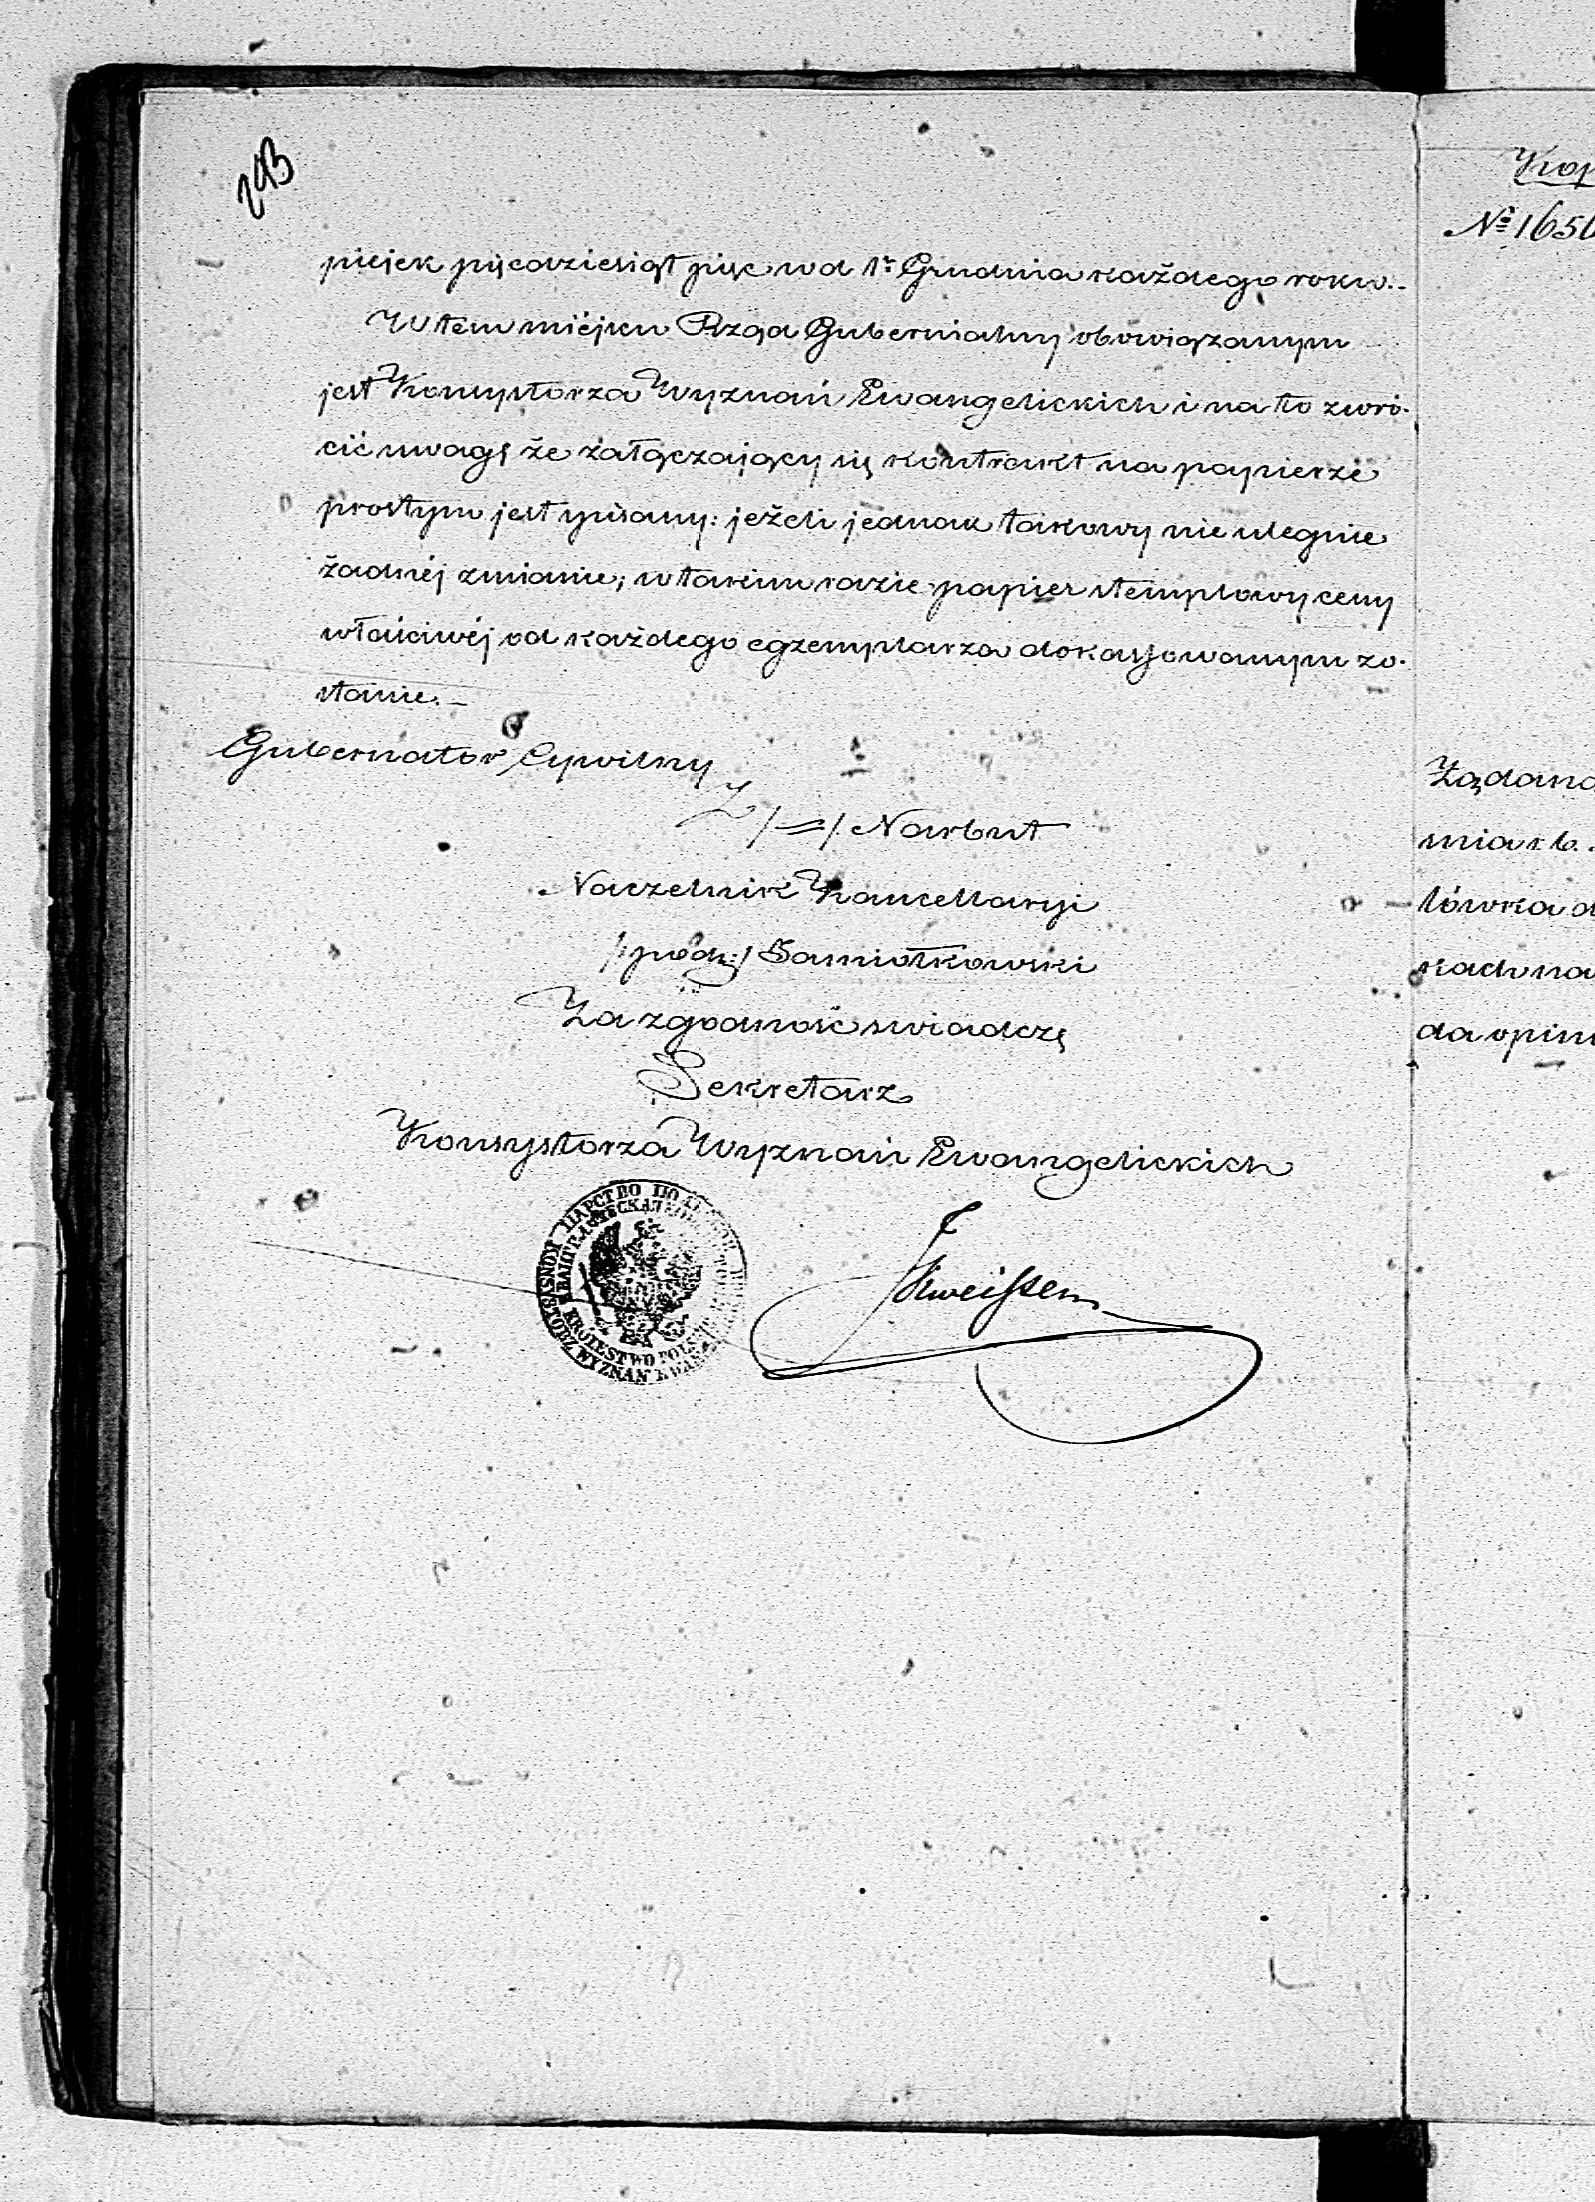 piejek pięćdziesiąt pięć od 1º Grudnia każdego roku.-
W tem miéjscu Rząd Gubernialny obowiązanym
jest Konsystorza Wyznań Ewangelickich i na to zwró-
cić uwagę że załączający się kontrakt na papierze
prostym jest spisany: jeżeli jednak takowy nie ulegnie
żadnéj zmianie; w takim razie papier stemplowy ceny
właściwéj od każdego egzemplarza dokassowanym zo-
stanie.-
Gubernator Cywilny
/=/ Narbut
Naczelnik Kancellaryi
/:podp:/ Samiotkowski
Za zgodność świadczę
Sekretarz
Konsystorza Wyznań Ewangelickich
KRÓLESTWO POLSKIE
Nº 1656
Żądana
mia r. b.
lówka d
kach na
da opini